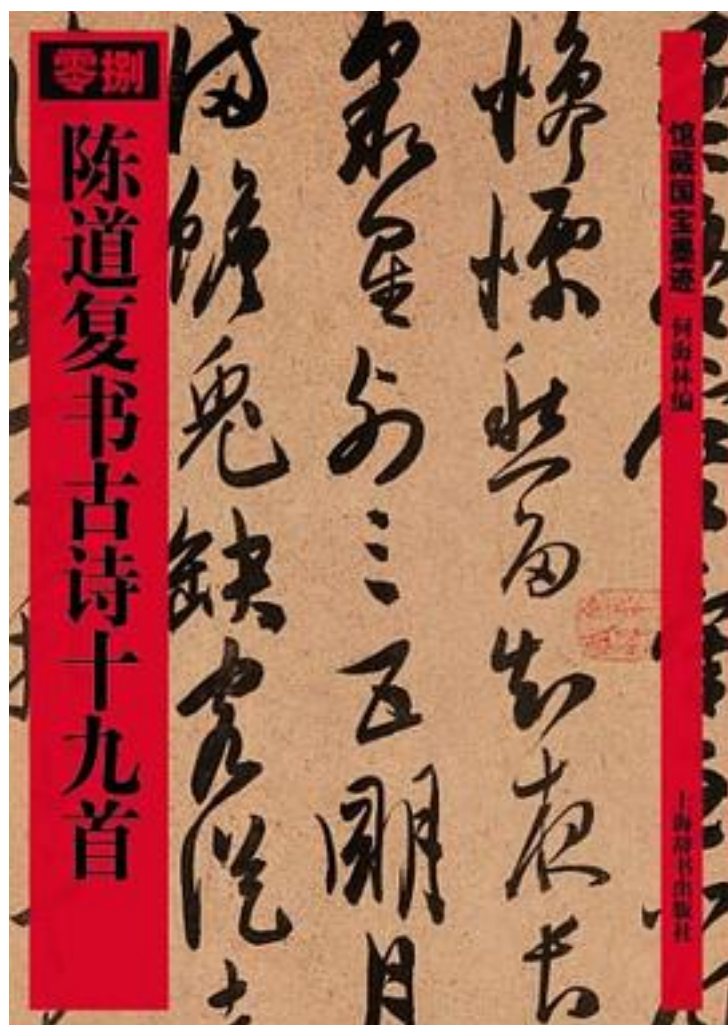 零捌
陈道复书古诗十九首
馆藏国宝墨迹 何海林编
上海辞书出版社
惨慄愁多知夜長
衆星列三五朙月
滿蟾兔缺客從